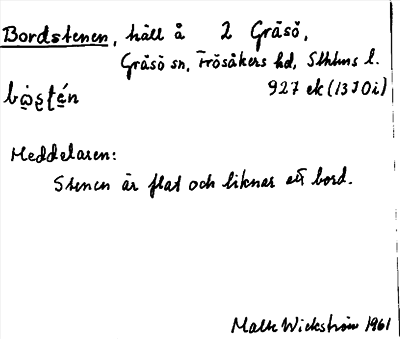 Bordstenen, häll å 2 Gräsö,
Gräsö sn, Frösåkers hd, Sthlms l.
927 ek (13 J Oi)
Meddelaren:
Stenen är flat och liknar ett bord.
Mats Wickström 1961